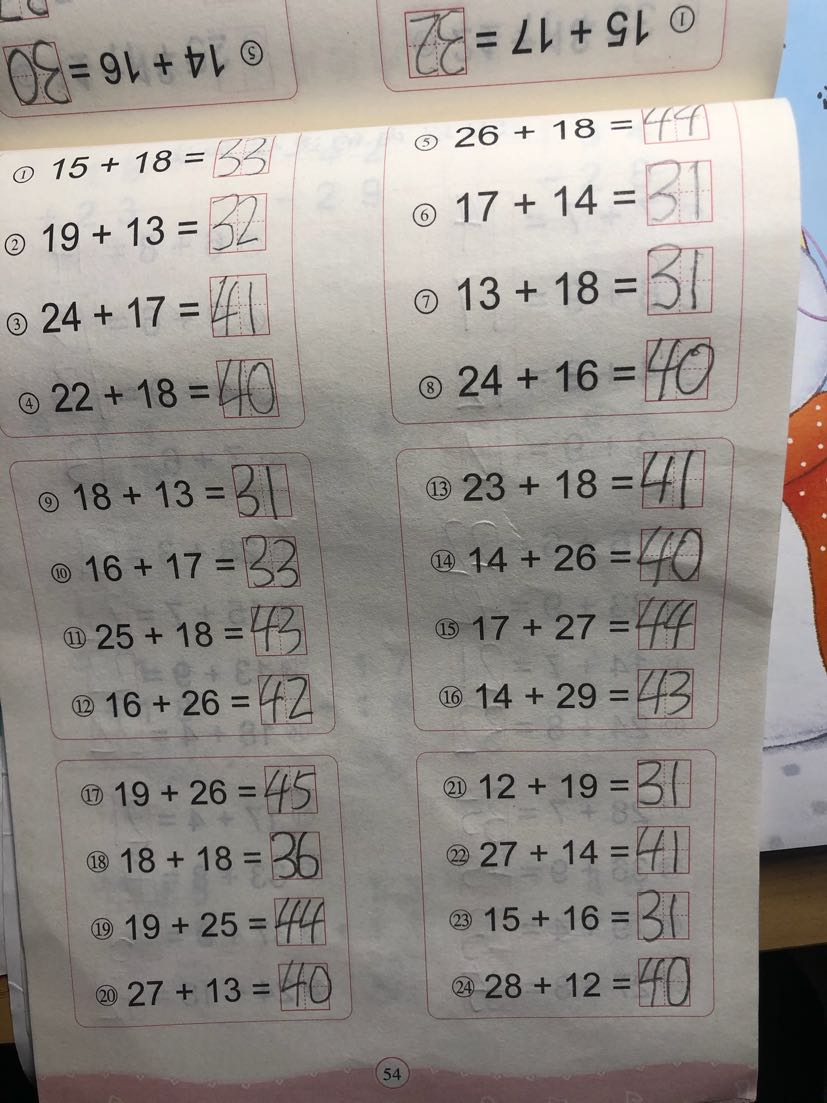 ⑤ 14 + 16 = 30
① 15 + 17 = 32
① 15 + 18 = 33
② 19 + 13 = 32
③ 24 + 17 = 41
④ 22 + 18 = 40
⑤ 26 + 18 = 44
⑥ 17 + 14 = 31
⑦ 13 + 18 = 31
⑧ 24 + 16 = 40
⑨ 18 + 13 = 31
⑩ 16 + 17 = 33
⑪ 25 + 18 = 43
⑫ 16 + 26 = 42
⑬ 23 + 18 = 41
⑭ 14 + 26 = 40
⑮ 17 + 27 = 44
⑯ 14 + 29 = 43
⑰ 19 + 26 = 45
⑱ 18 + 18 = 36
⑲ 19 + 25 = 44
⑳ 27 + 13 = 40
㉑ 12 + 19 = 31
㉒ 27 + 14 = 41
㉓ 15 + 16 = 31
㉔ 28 + 12 = 40
54